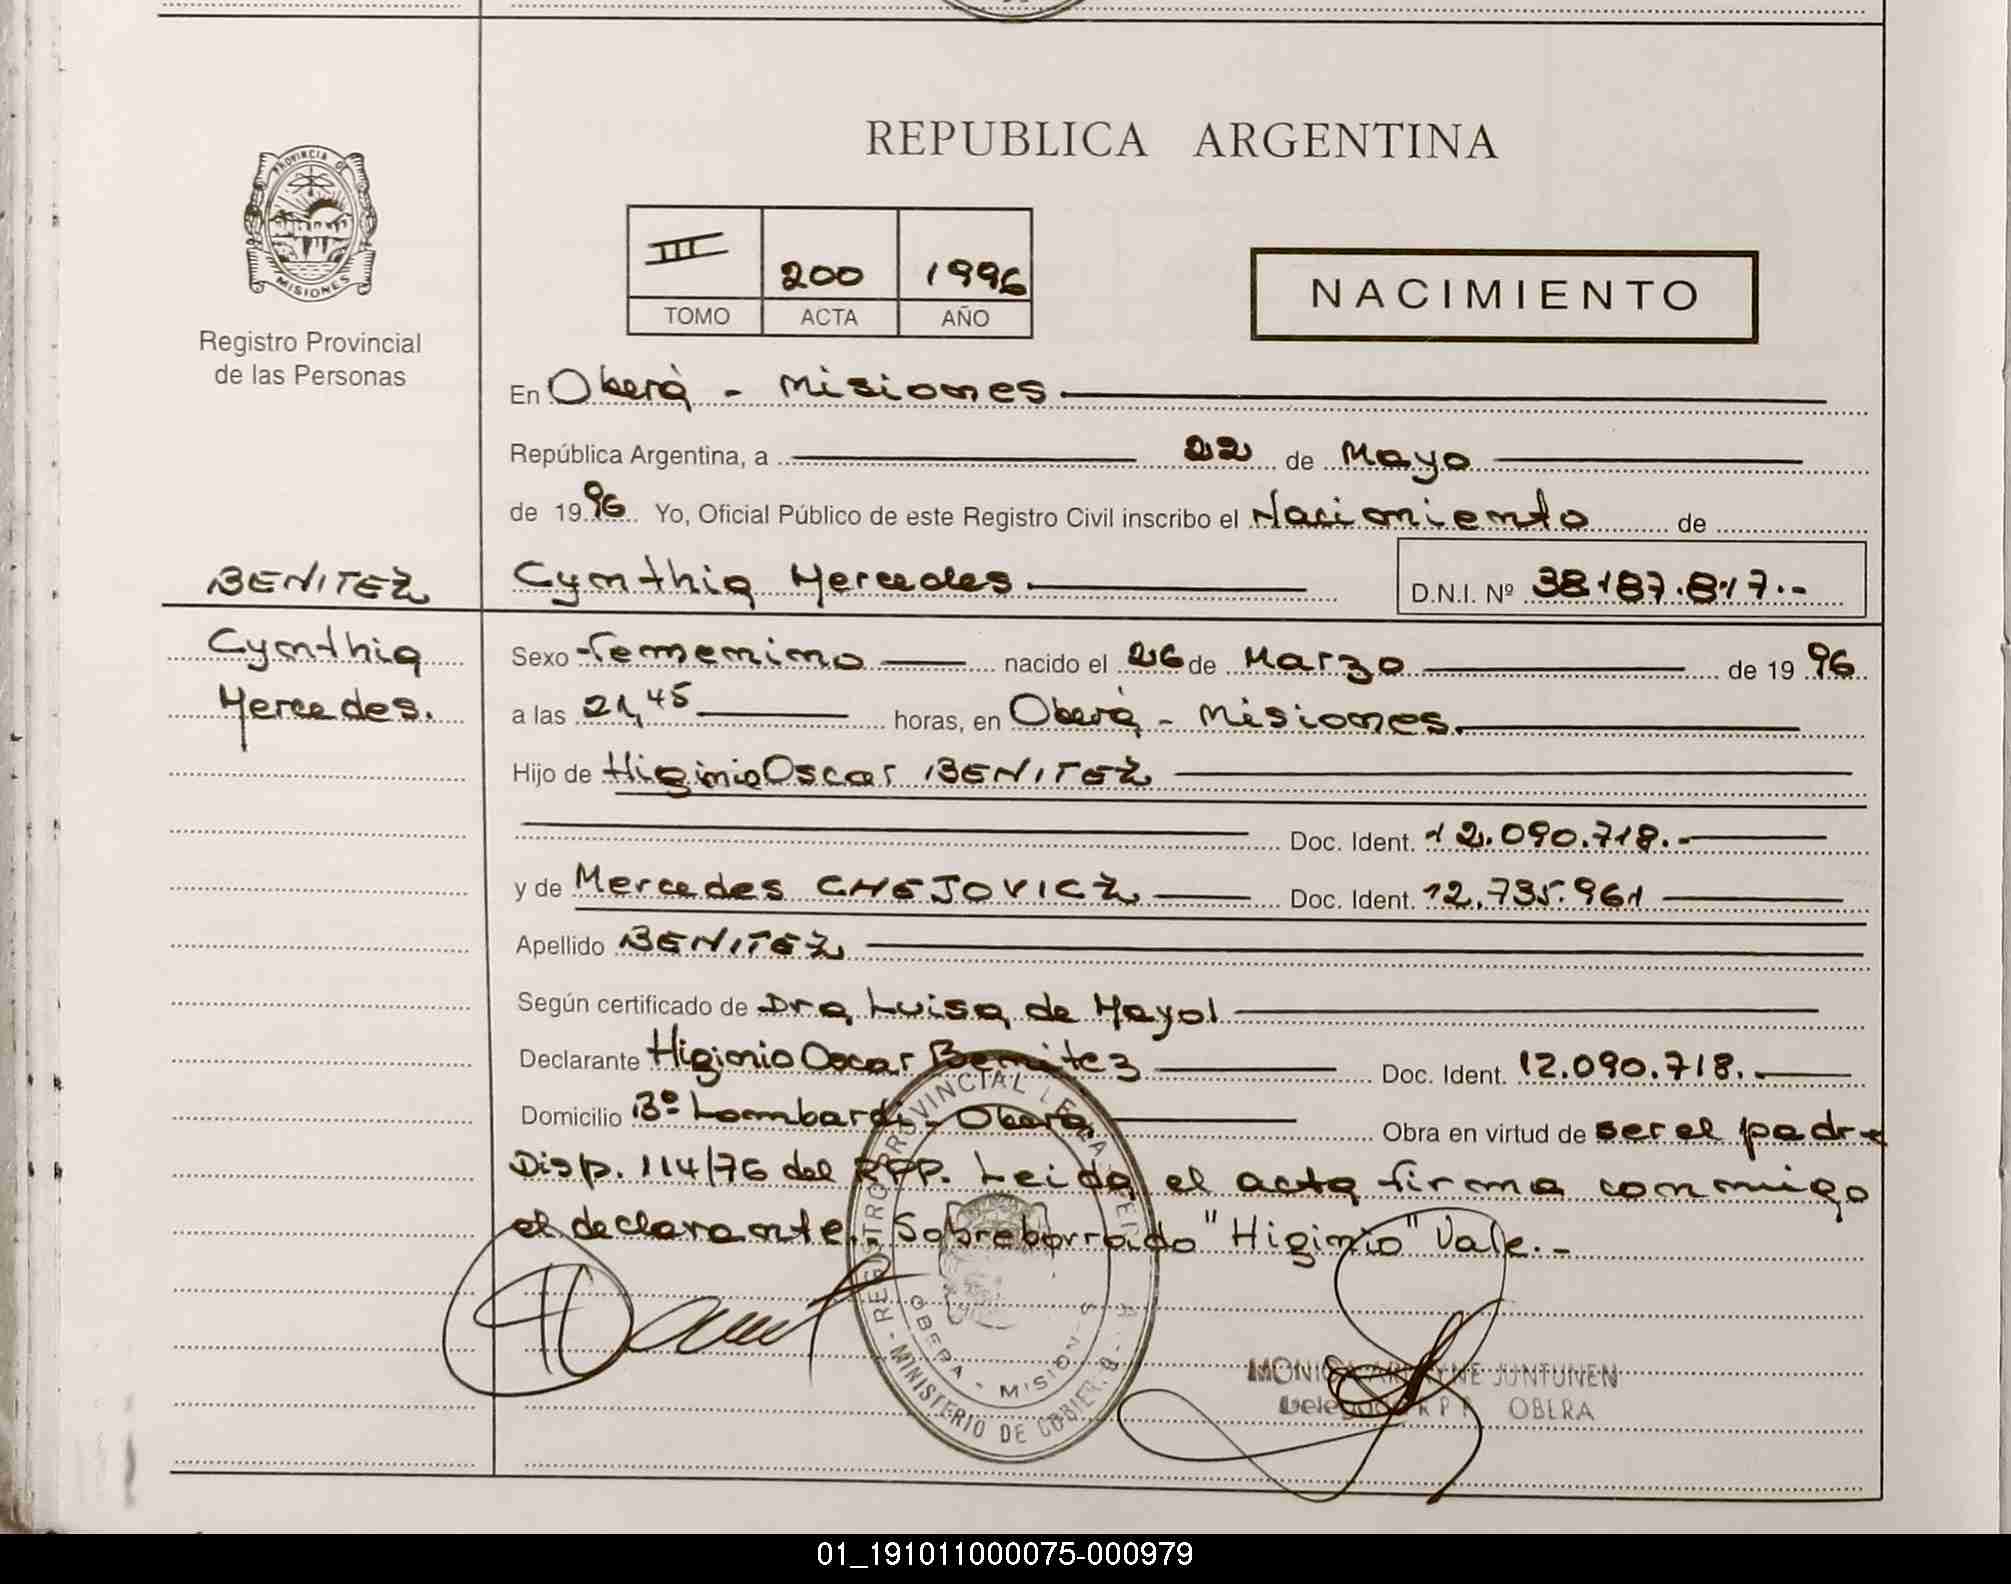 REPUBLICA ARGENTINA
PROVINCIA DE
MISIONES
Registro Provincial
de las Personas
III 200 1996
TOMO ACTA AÑO
NACIMIENTO
En Oberá - Misiones
República Argentina, a 22 de Mayo
de 1996 Yo, Oficial Público de este Registro Civil inscribo el Nacimiento de
BENITEZ
Cynthia
Mercedes.
Cynthia Mercedes D.N.I. Nº 38.187.817.-
Sexo Femenino nacido el 26 de Marzo de 1996
a las 21,45 horas, en Oberá - Misiones.
Hijo de Higinio Oscar BENITEZ
Doc. Ident. 12.090.718.-
y de Mercedes CHEJOVICZ Doc. Ident. 12.735.961
Apellido BENITEZ
Según certificado de Dra Luisa de Mayol
Declarante Higinio Oscar Benitez Doc. Ident. 12.090.718.-
Domicilio Bº Lombardi - Oberá. Obra en virtud de ser el padre
Disp. 114/76 del RPP. Leida el acta firma conmigo
el declarante.- Sobreborrado "Higinio" Vale.-
REGISTRO PROVINCIAL DE LAS
OBERA - MISIONES
MINISTERIO DE GOBIERNO
JUNTUNEN
R P P OBERA
01_191011000075-000979